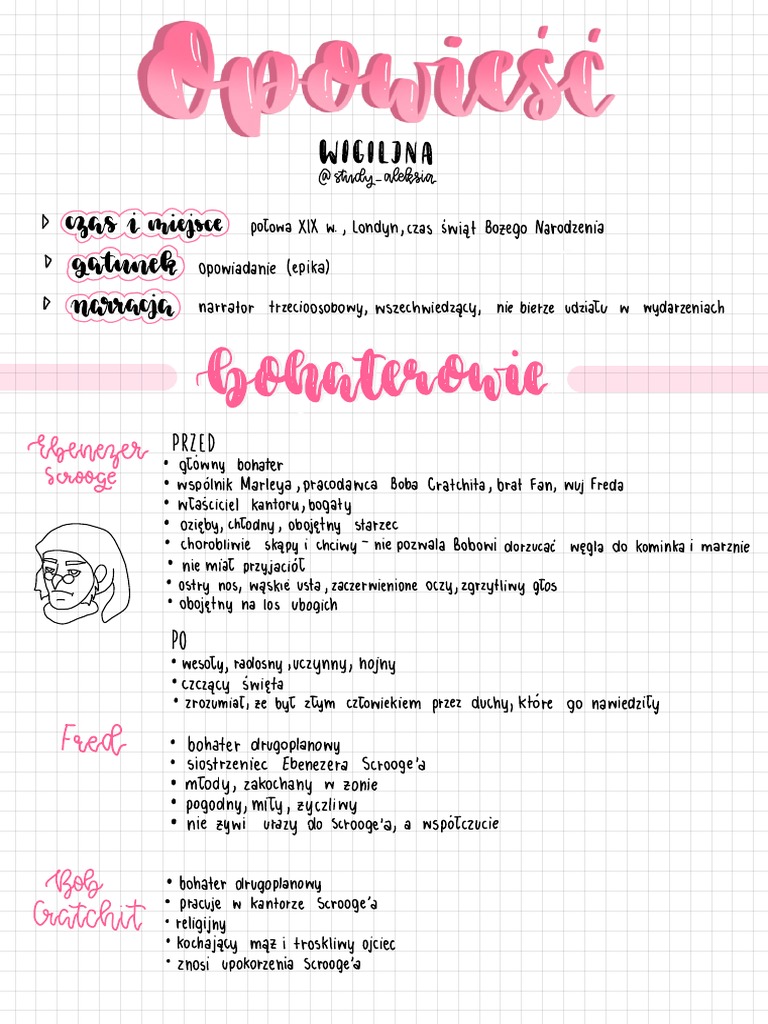 Opowieść
WIGILIJNA
@study_aleksia
czas i miejsce połowa XIX w., Londyn, czas świąt Bożego Narodzenia
gatunek opowiadanie (epika)
narracja narrator trzecioosobowy, wszechwiedzący, nie bierze udziału w wydarzeniach
bohaterowie
Ebenezer
Scrooge
PRZED
• główny bohater
• wspólnik Marleya, pracodawca Boba Cratchita, brat Fan, wuj Freda
• właściciel kantoru, bogaty
• ozięby, chłodny, obojętny starzec
• chorobliwie skąpy i chciwy - nie pozwala Bobowi dorzucać węgla do kominka i marznie
• nie miał przyjaciół
• ostry nos, wąskie usta, zaczerwienione oczy, zgrzytliwy głos
• obojętny na los ubogich
PO
• wesoły, radosny, uczynny, hojny
• czczący święta
• zrozumiał, że był złym człowiekiem przez duchy, które go nawiedziły
Fred
• bohater drugoplanowy
• siostrzeniec Ebenezera Scrooge'a
• młody, zakochany w żonie
• pogodny, miły, życzliwy
• nie żywi urazy do Scrooge'a, a współczucie
Bob
Cratchit
• bohater drugoplanowy
• pracuje w kantorze Scrooge'a
• religijny
• kochający mąż i troskliwy ojciec
• znosi upokorzenia Scrooge'a